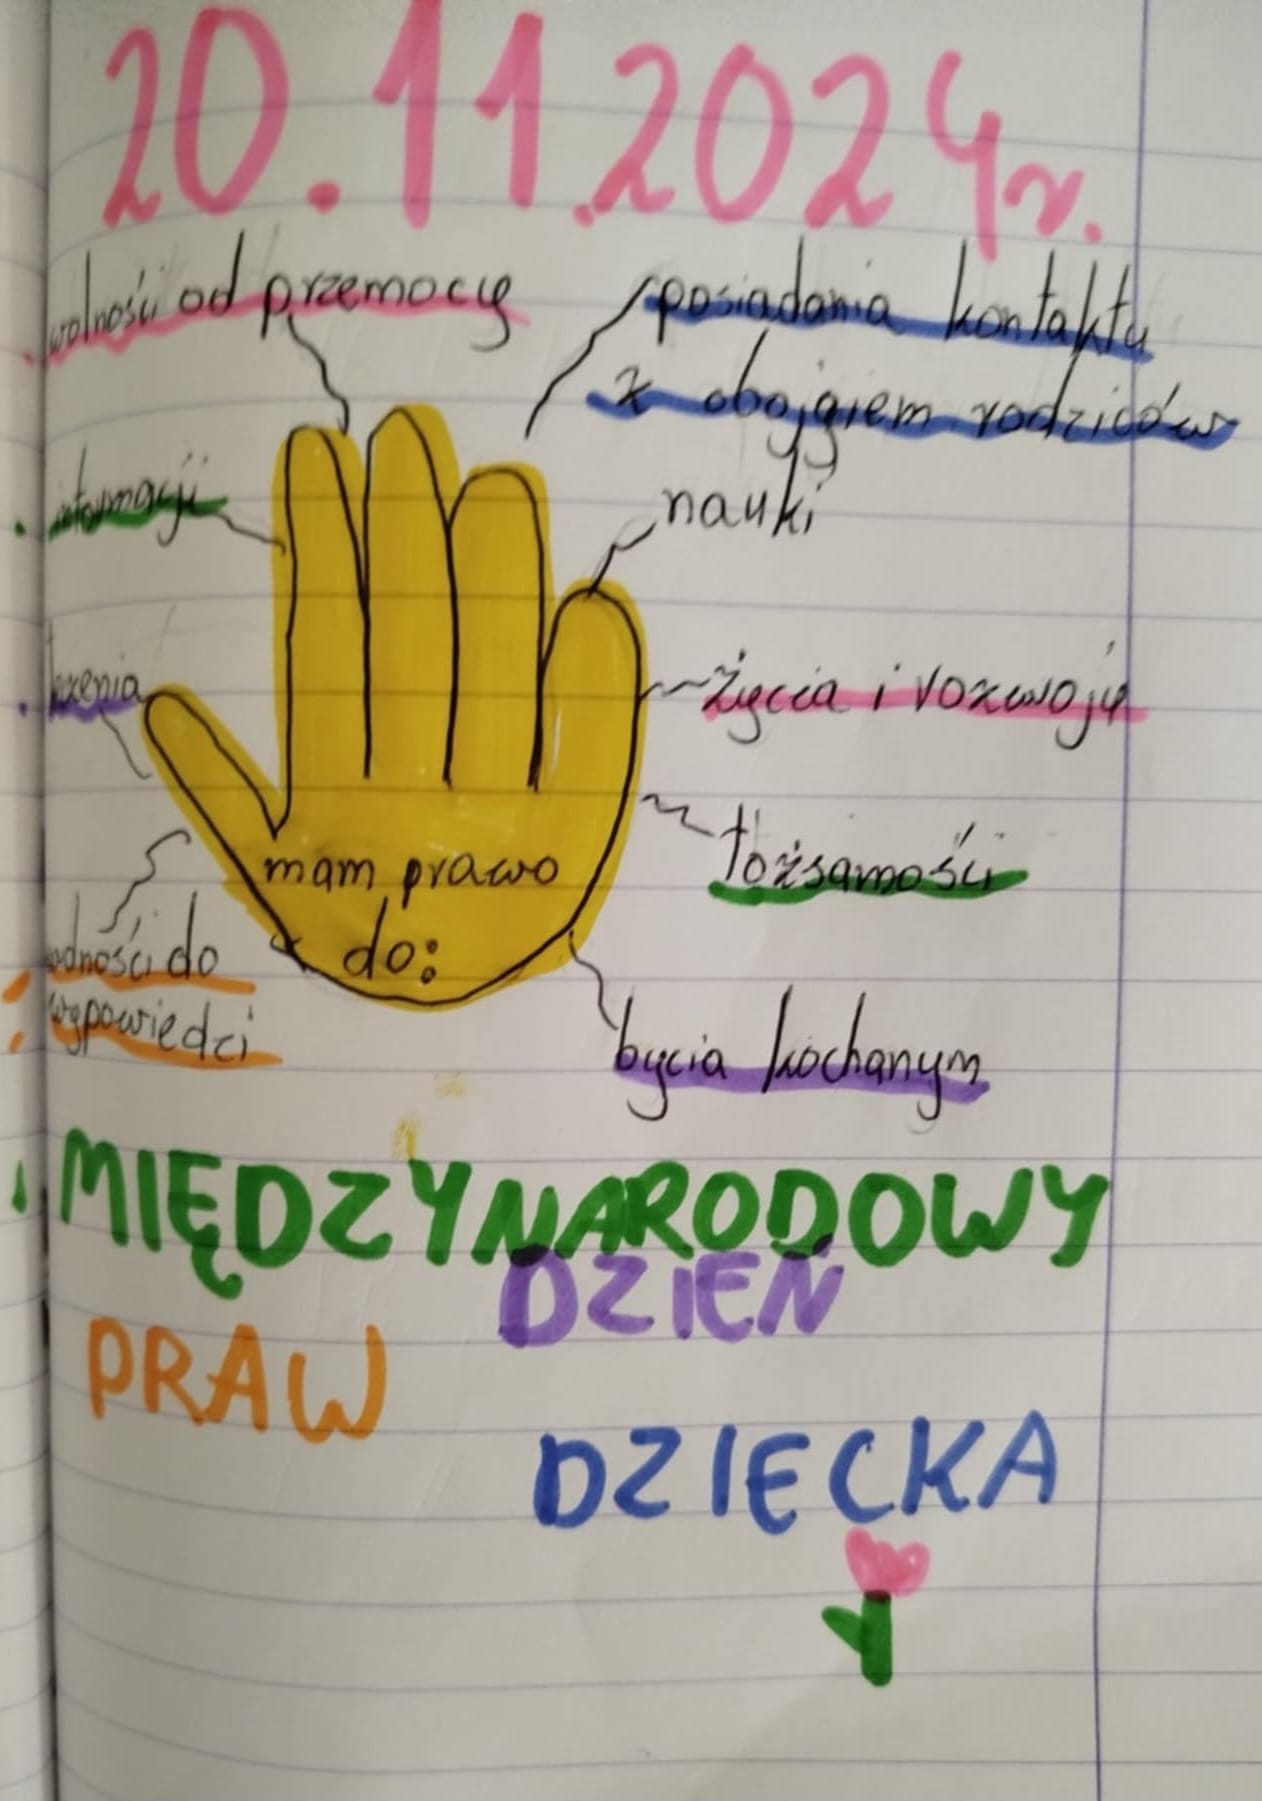 20.11.2024r.
wolności od przemocy
posiadania kontaktu
z obojgiem rodziców
informacji
nauki
życia i rozwoju
tożsamości
mam prawo
do:
do
wypowiedzi
bycia kochanym
MIĘDZYNARODOWY
DZIEŃ
PRAW
DZIECKA